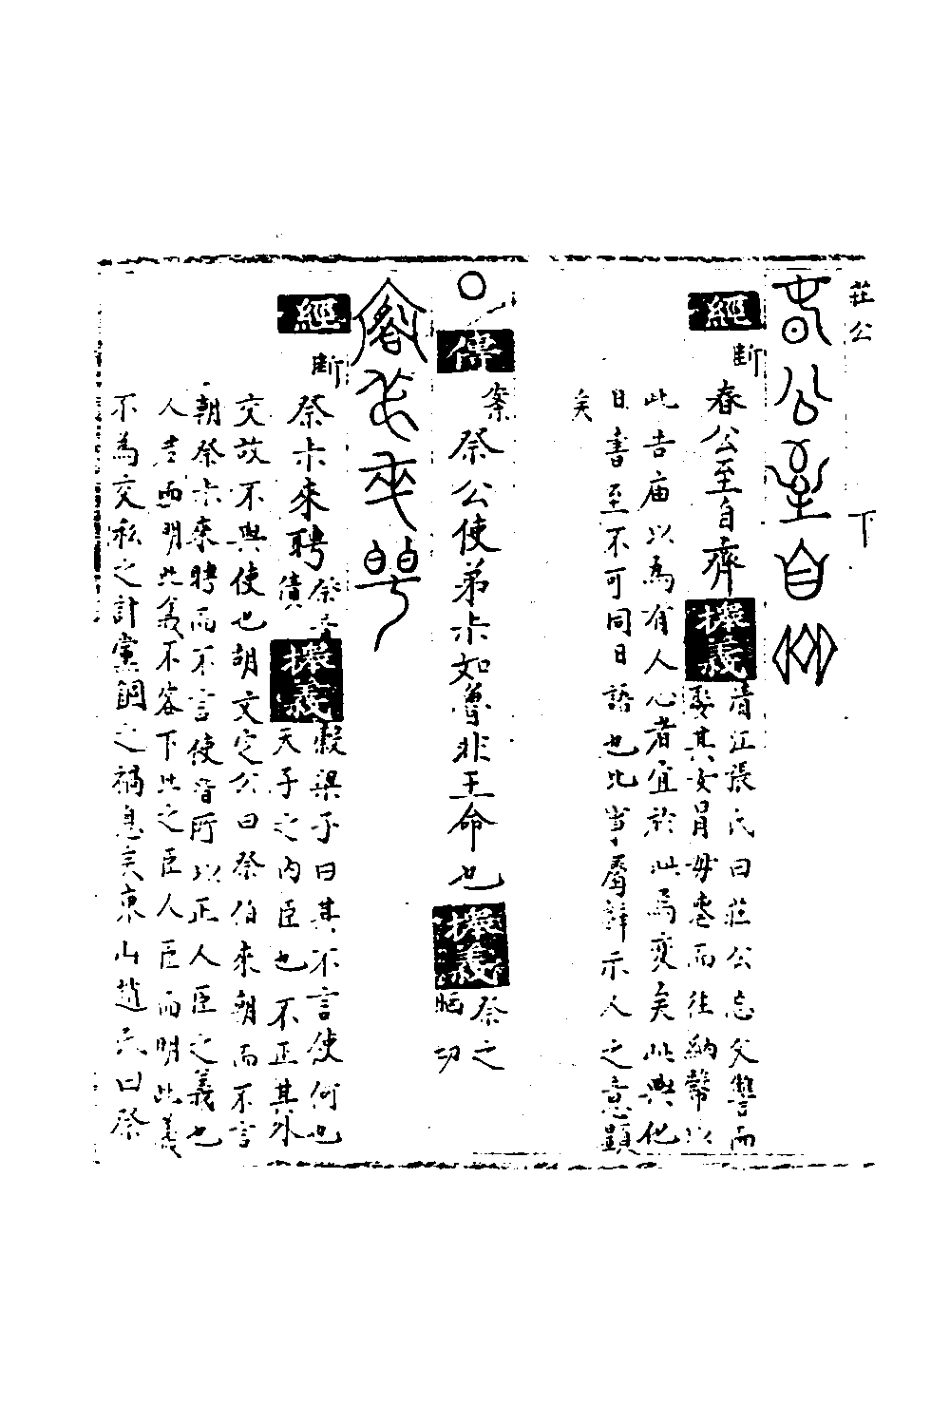 莊公 下
春公至自齊
經 斷 春公至自齊 據義 清江張氏曰莊公忘父讐而
娶其女員毋喪而往納幣以
此告庙以為有人心者宜於此為變矣此與他
日書至不可同日語也比事屬辭示人之意顯
矣
○傳 案 祭公使弟尗如魯非王命也 據義 祭之
切
祭尗來聘
經 斷 祭尗來聘 祭音債 據義 榖梁子曰其不言使何也
天子之内臣也不正其外
交故不與使也胡文定公曰祭伯來朝而不言
朝祭尗來聘而不言使皆所以正人臣之義也
人君而明此義不容下比之臣人臣而明此義
不為交私之計黨錮之禍息矣東山趙氏曰祭